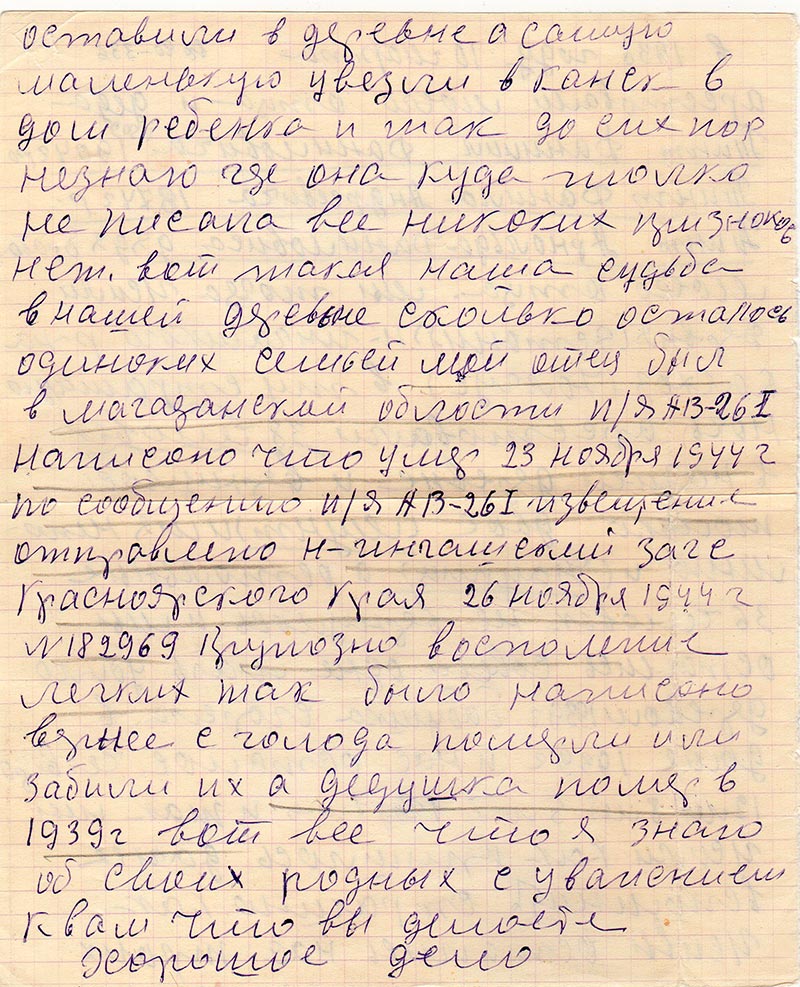 оставили в деревне а самую
маленькую увезли в Канск в
дом ребенка и так до сих пор
незнаю где она куда толко
не писала все никоких призноков
нет. вот такая наша судьба
в нашей деревне сколько осталось
одиноких семьей мой отец был
в магаданской облости п/я АВ-26I
написоно что умер 23 ноября 1944 г
по сообщению п/я АВ-26I извещение
отправлено Н-ингашский загс
Красноярского Края 26 ноября 1944 г
N182969 Крупозно восполение
легких так было написоно
вернее с голода померли или
забили их а дедушка помер в
1939г вот все что я знаю
об своих родных с уважением
к вам что вы делоете
хорошое дело